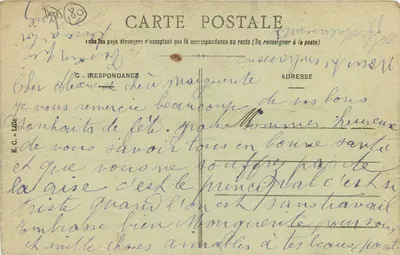 180
CARTE POSTALE
Tous les pays étrangers n'acceptant pas la correspondance au recto (Se renseigner à la poste)
CORRESPONDANCE
ADRESSE
E. C. - LION
Cher chère Marguerite
je vous remercie beaucoup de vos bons
souhaits de fête. nous sommes heureux
de vous savoir tous en bonne santé
et que vous ne souffrez pas de
la aise c'est le principal c'est si
triste quand l'on est sans travail
Embrasse bien Marguerite pour nous
et mille choses aimables à tes beaux parents